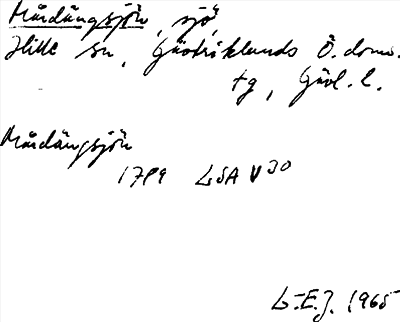 Mårdängsjön, sjö,
Hille sn, Gästriklands Ö. doms.
tg, Gävl. l.
Mårdängsjön
1789 LSA V 30
L.E.J. 1965